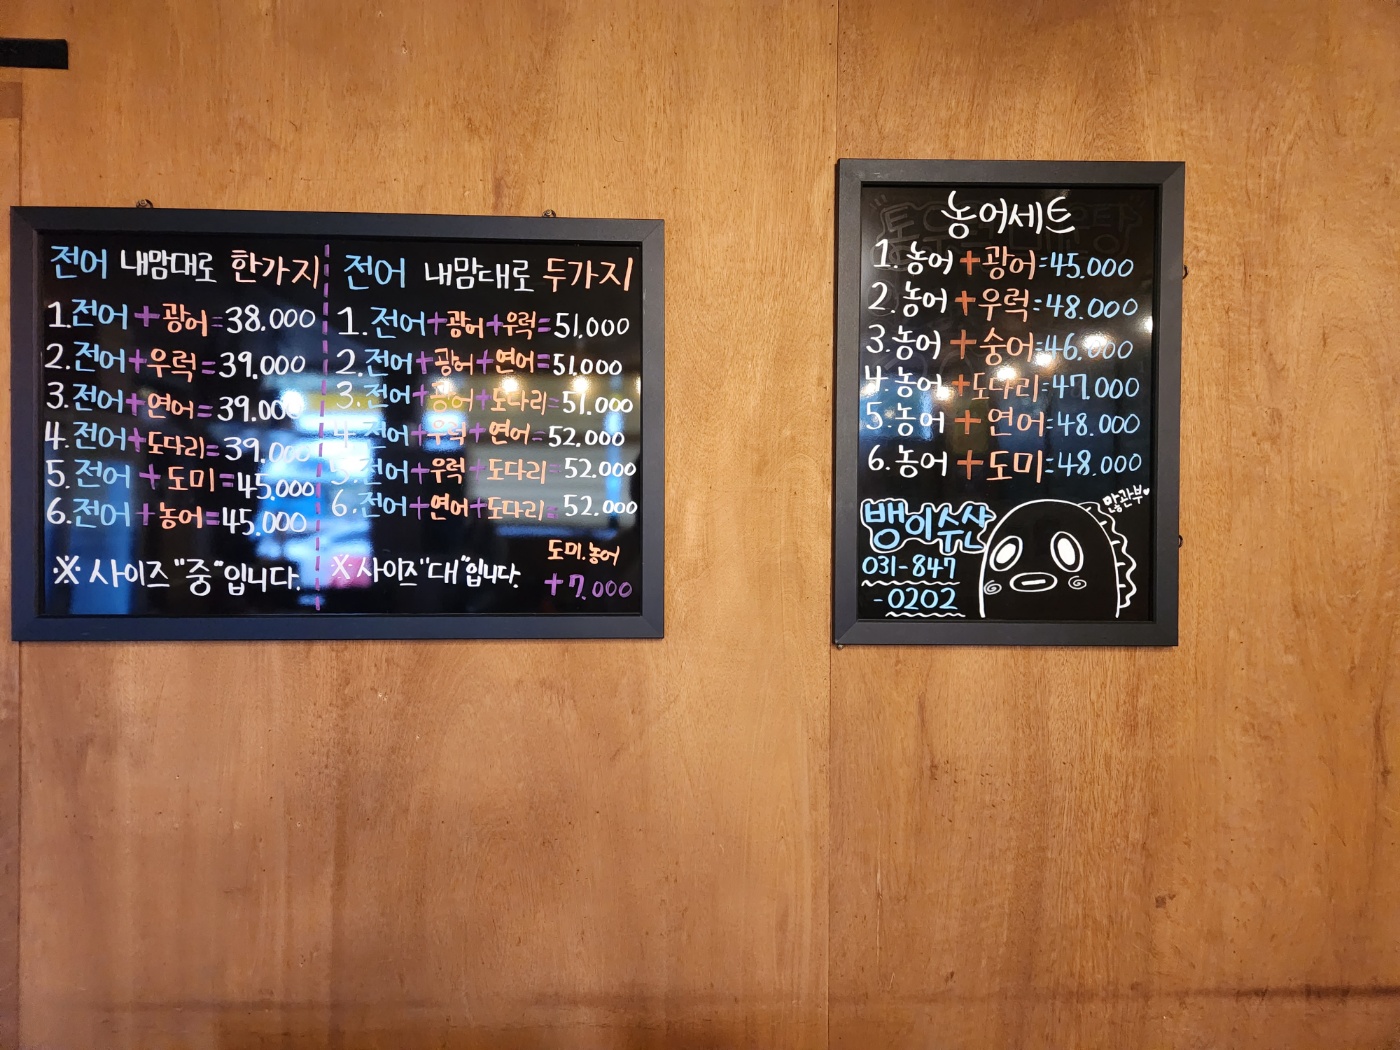 전어 내맘대로 한가지
1.전어+광어=38.000
2.전어+우럭=39.000
3.전어+연어=39.000
4.전어+도다리=39.000
5.전어+도미=45.000
6.전어+농어=45.000
※ 사이즈 "중"입니다.
전어 내맘대로 두가지
1.전어+광어+우럭=51.000
2.전어+광어+연어=51.000
3.전어+광어+도다리=51.000
4.전어+우럭+연어=52.000
5.전어+우럭+도다리=52.000
6.전어+연어+도다리=52.000
도미.농어
+7.000
※사이즈"대"입니다.
농어세트
1.농어+광어=45.000
2.농어+우럭=48.000
3.농어+숭어=46.000
4.농어+도다리=47.000
5.농어+연어=48.000
6.농어+도미=48.000
많관부♥
뱅이수산
031-847
-0202